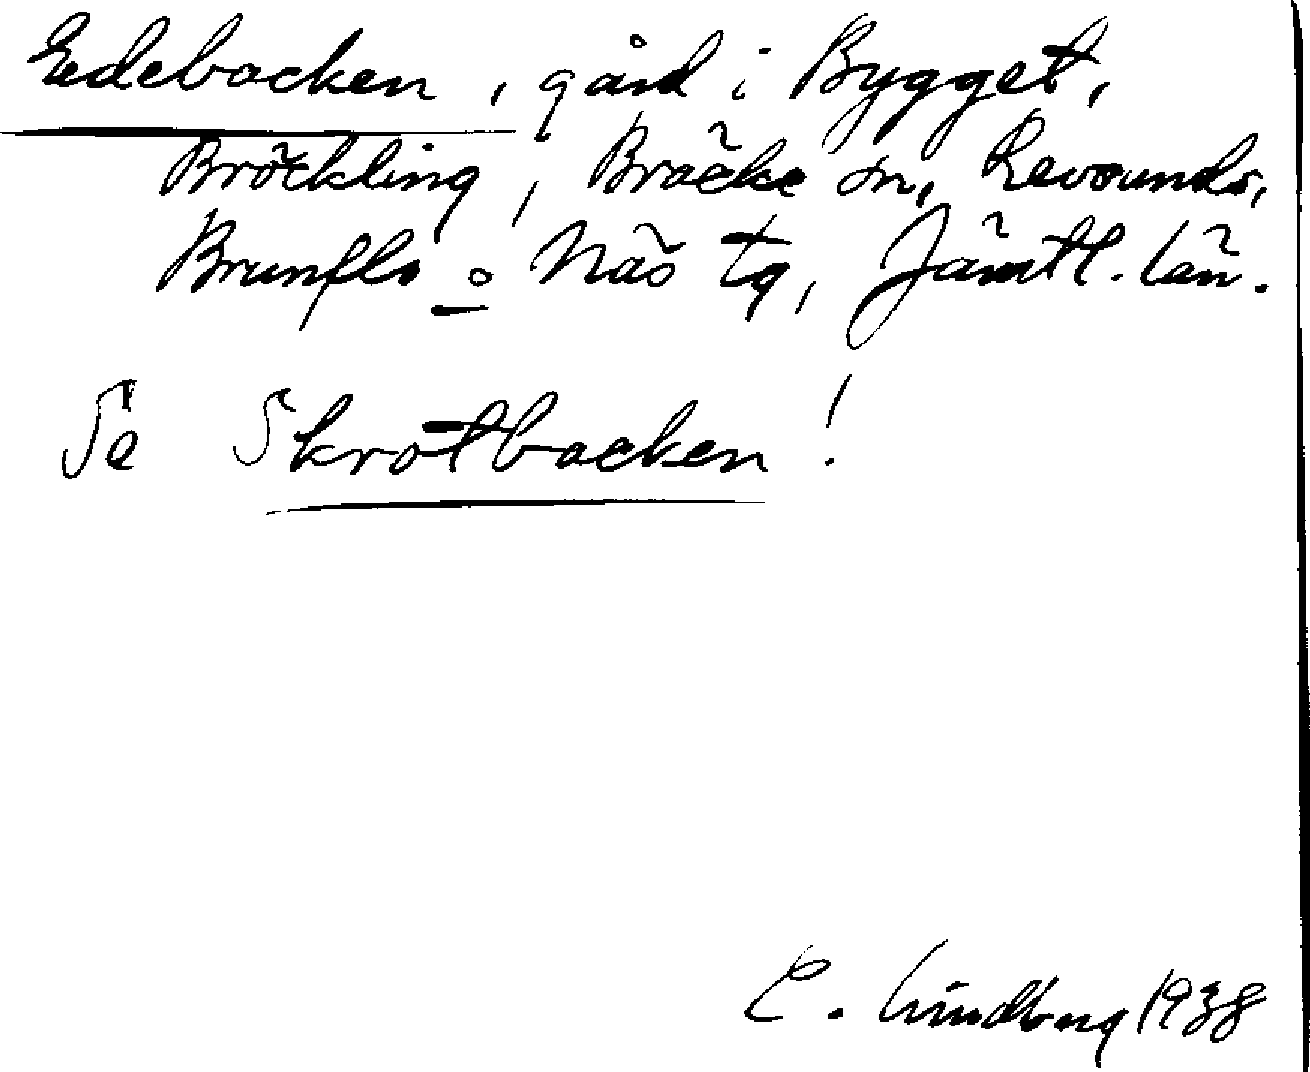 Edebacken, gård i Bygget,
Bröckling, Bräcke sn, Revsunds,
Brunflo o Näs tg, Jämtl. län.
Se Skrotbacken!
C. Lindberg 1938